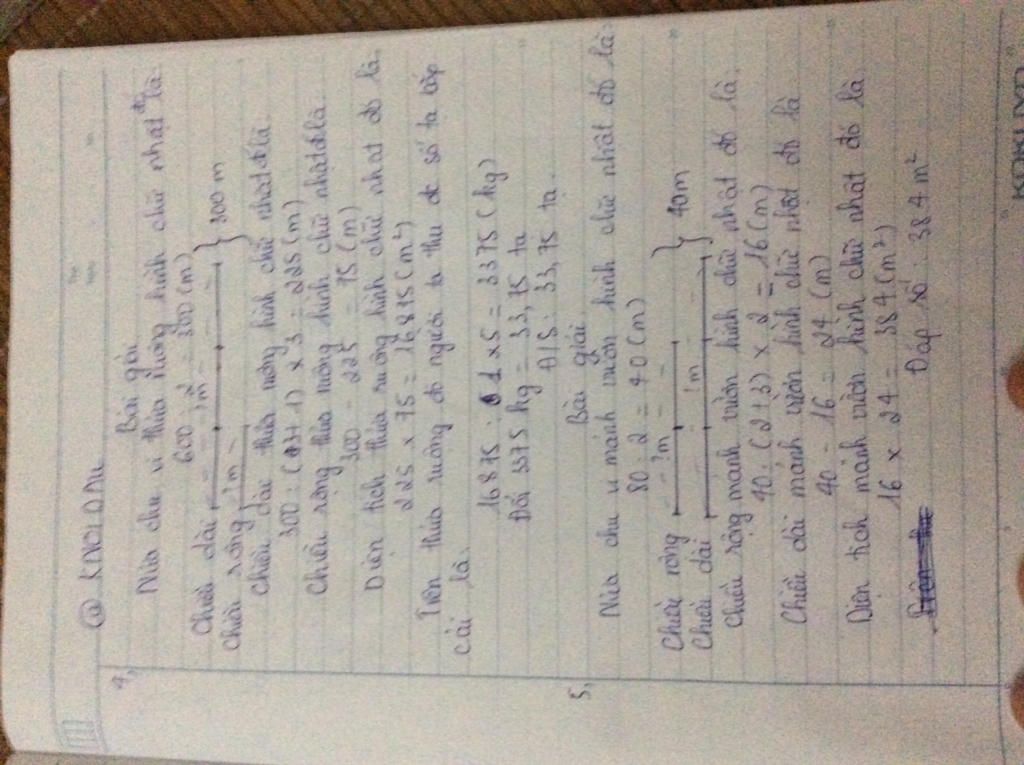 4,
Bài giải
Nửa chu vi thửa ruộng hình chữ nhật đó là:
600 : 2 = 300 (m)
?m
Chiều dài
Chiều rộng
?m
300 m
Chiều dài thửa ruộng hình chữ nhật đó là
300 : (3+1) x 3 = 225 (m)
Chiều rộng thửa ruộng hình chữ nhật đó là
300 - 225 = 75 (m)
Diện tích thửa ruộng hình chữ nhật đó là.
225 x 75 = 16875 (m²)
Trên thửa ruộng đó người ta thu đc số tạ bắp
cải là.
16875 : 1 x 5 = 3375 (kg)
Đổi 3375 kg = 33,75 tạ
Đ/S: 33,75 tạ.
5,
Bài giải
Nửa chu vi mảnh vườn hình chữ nhật đó là:
80 : 2 = 40 (m)
?m
Chiều rộng
Chiều dài
?m
40m
Chiều rộng mảnh vườn hình chữ nhật đó là.
40 : (2+3) x 2 = 16 (m)
Chiều dài mảnh vườn hình chữ nhật đó là
40 - 16 = 24 (m)
Diện tích mảnh vườn hình chữ nhật đó là
16 x 24 = 384 (m²)
Đáp số : 384 m²